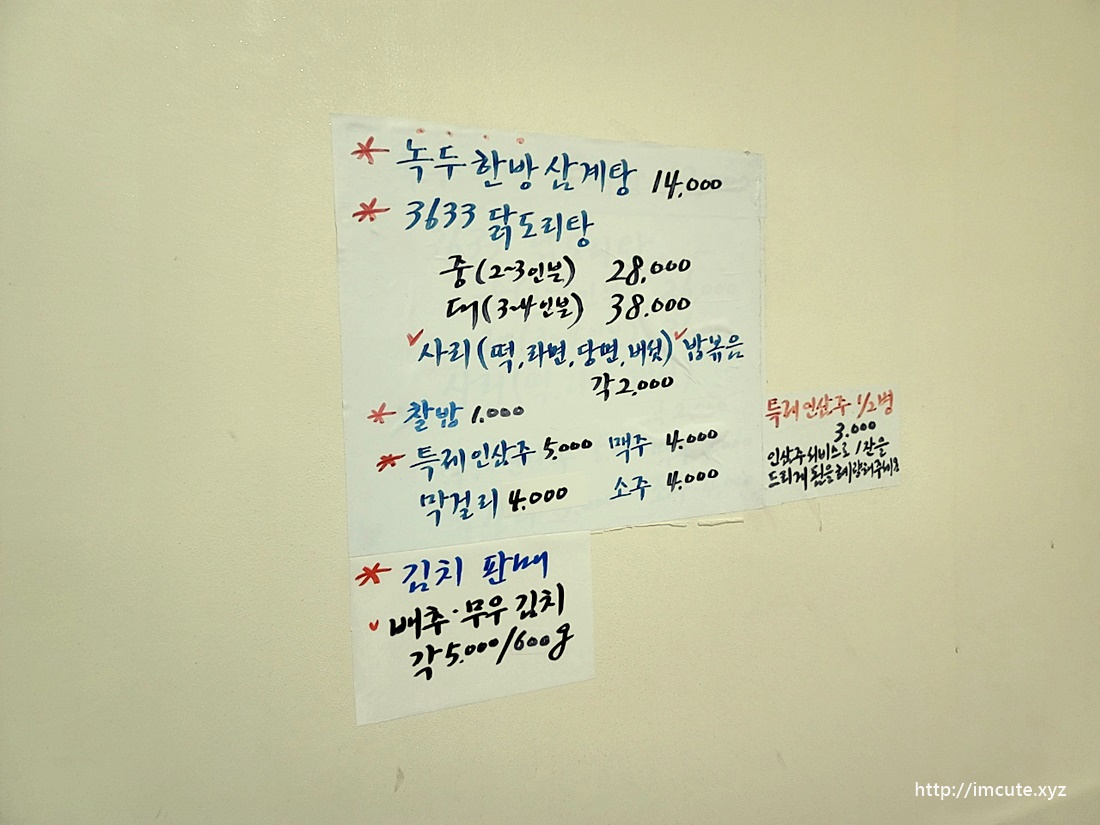 * 녹두한방삼계탕 14,000
* 3633 닭도리탕
중(2~3인분) 28,000
대(3~4인분) 38,000
✓사리(떡,라면,당면,버섯) ✓밥볶음
각2,000
* 찰밥 1.000
* 특제인삼주 5,000 맥주 4.000
막걸리 4.000 소주 4.000
특제인삼주 1/2병
3.000
인삼주서비스로 1잔을
드리게
* 김치 판매
✓ 배추·무우 김치
각5.000/600g
http://imcute.xyz